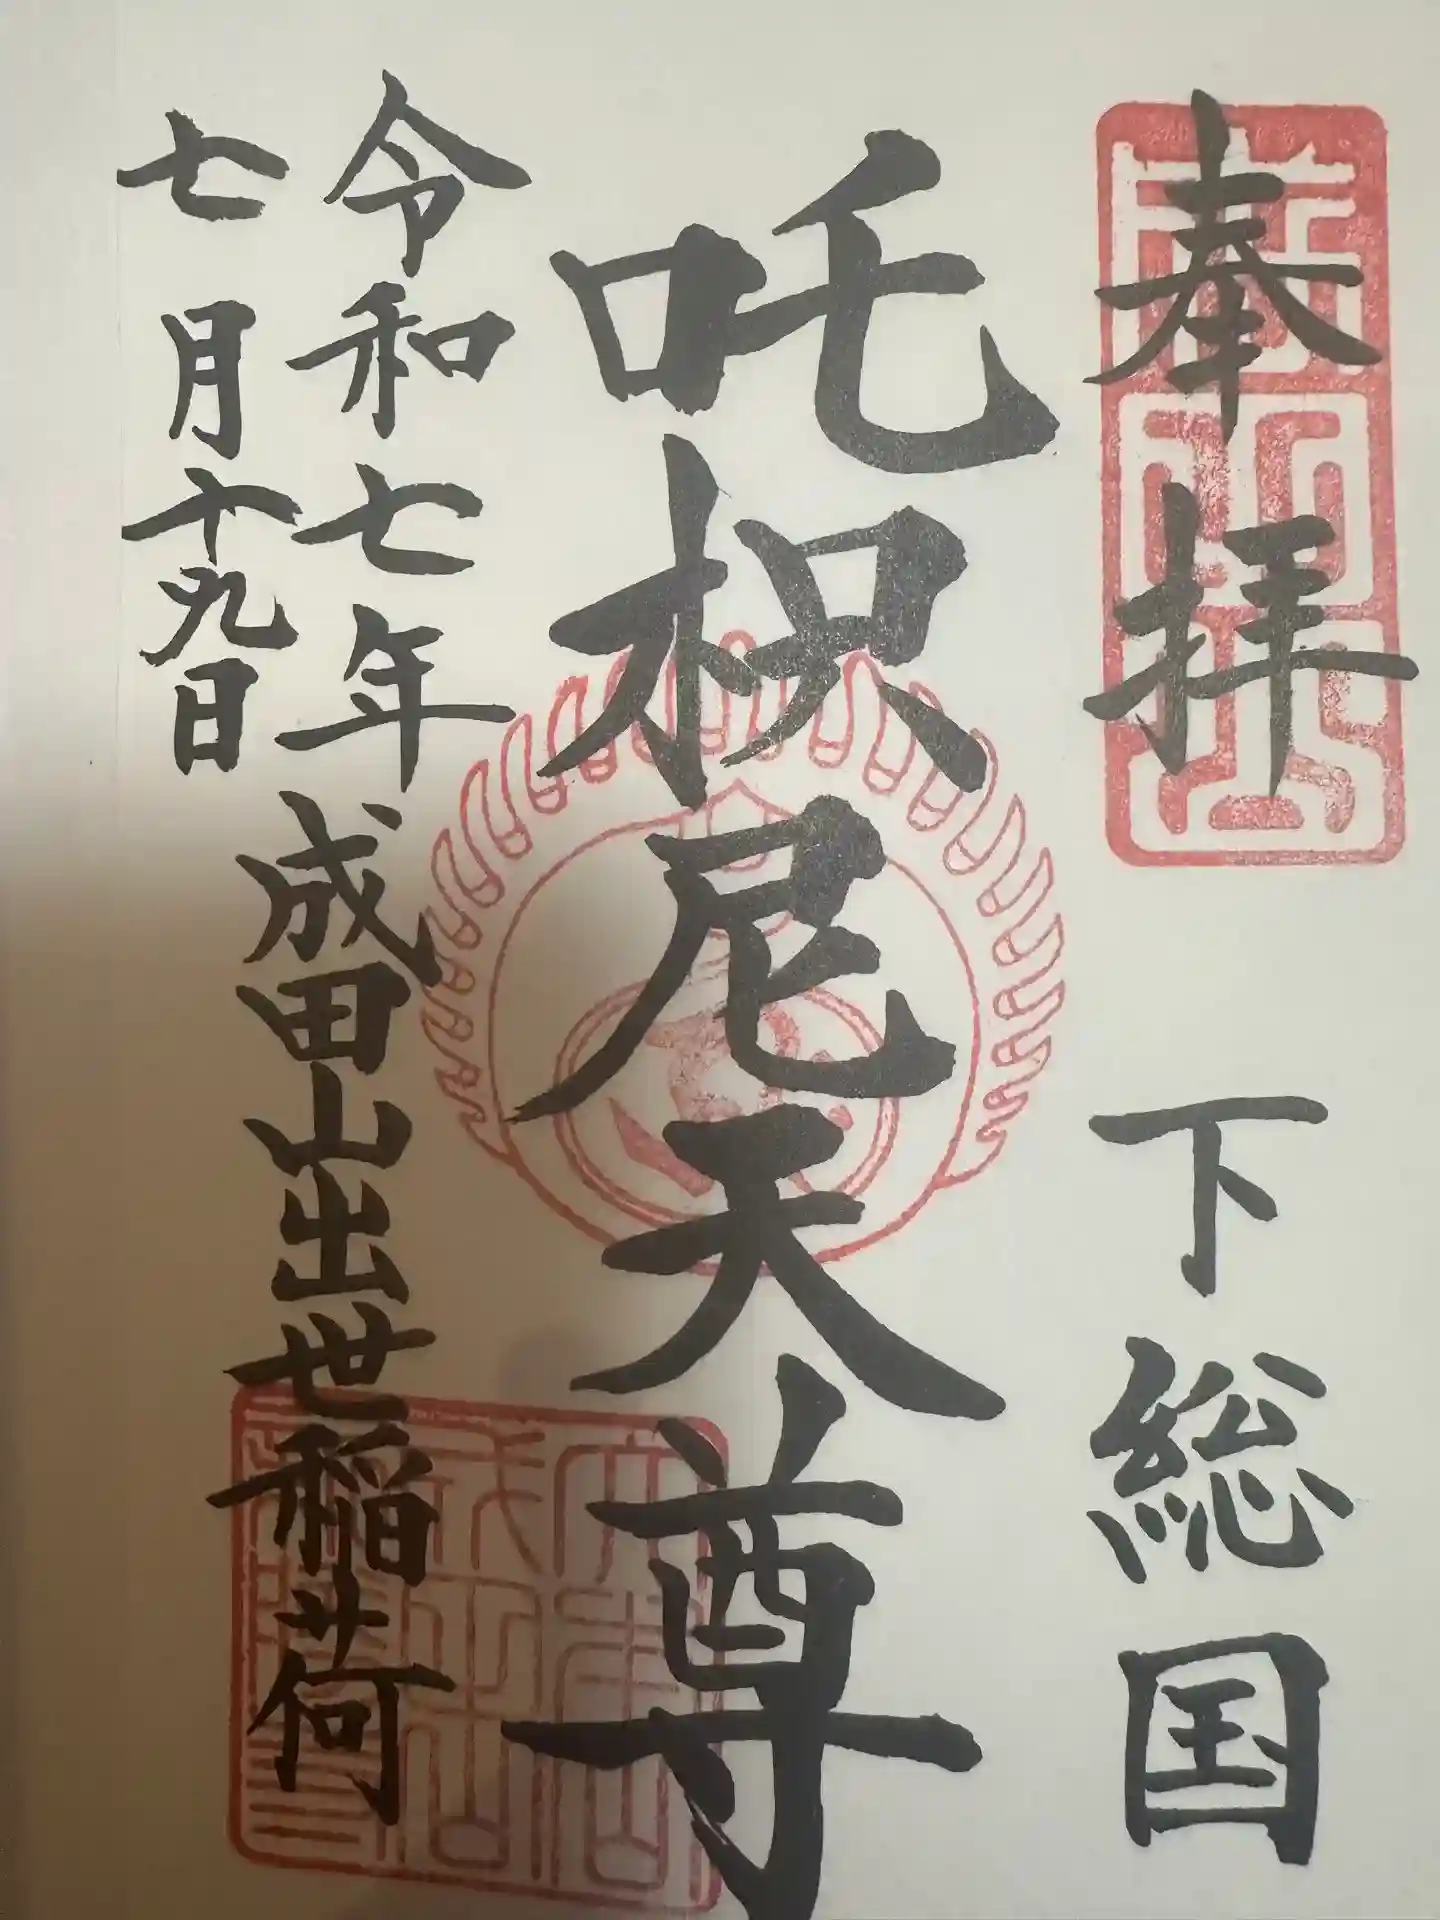 奉拝
下総国
吒枳尼天尊
令和七年
七月十九日
成田山出世稲荷